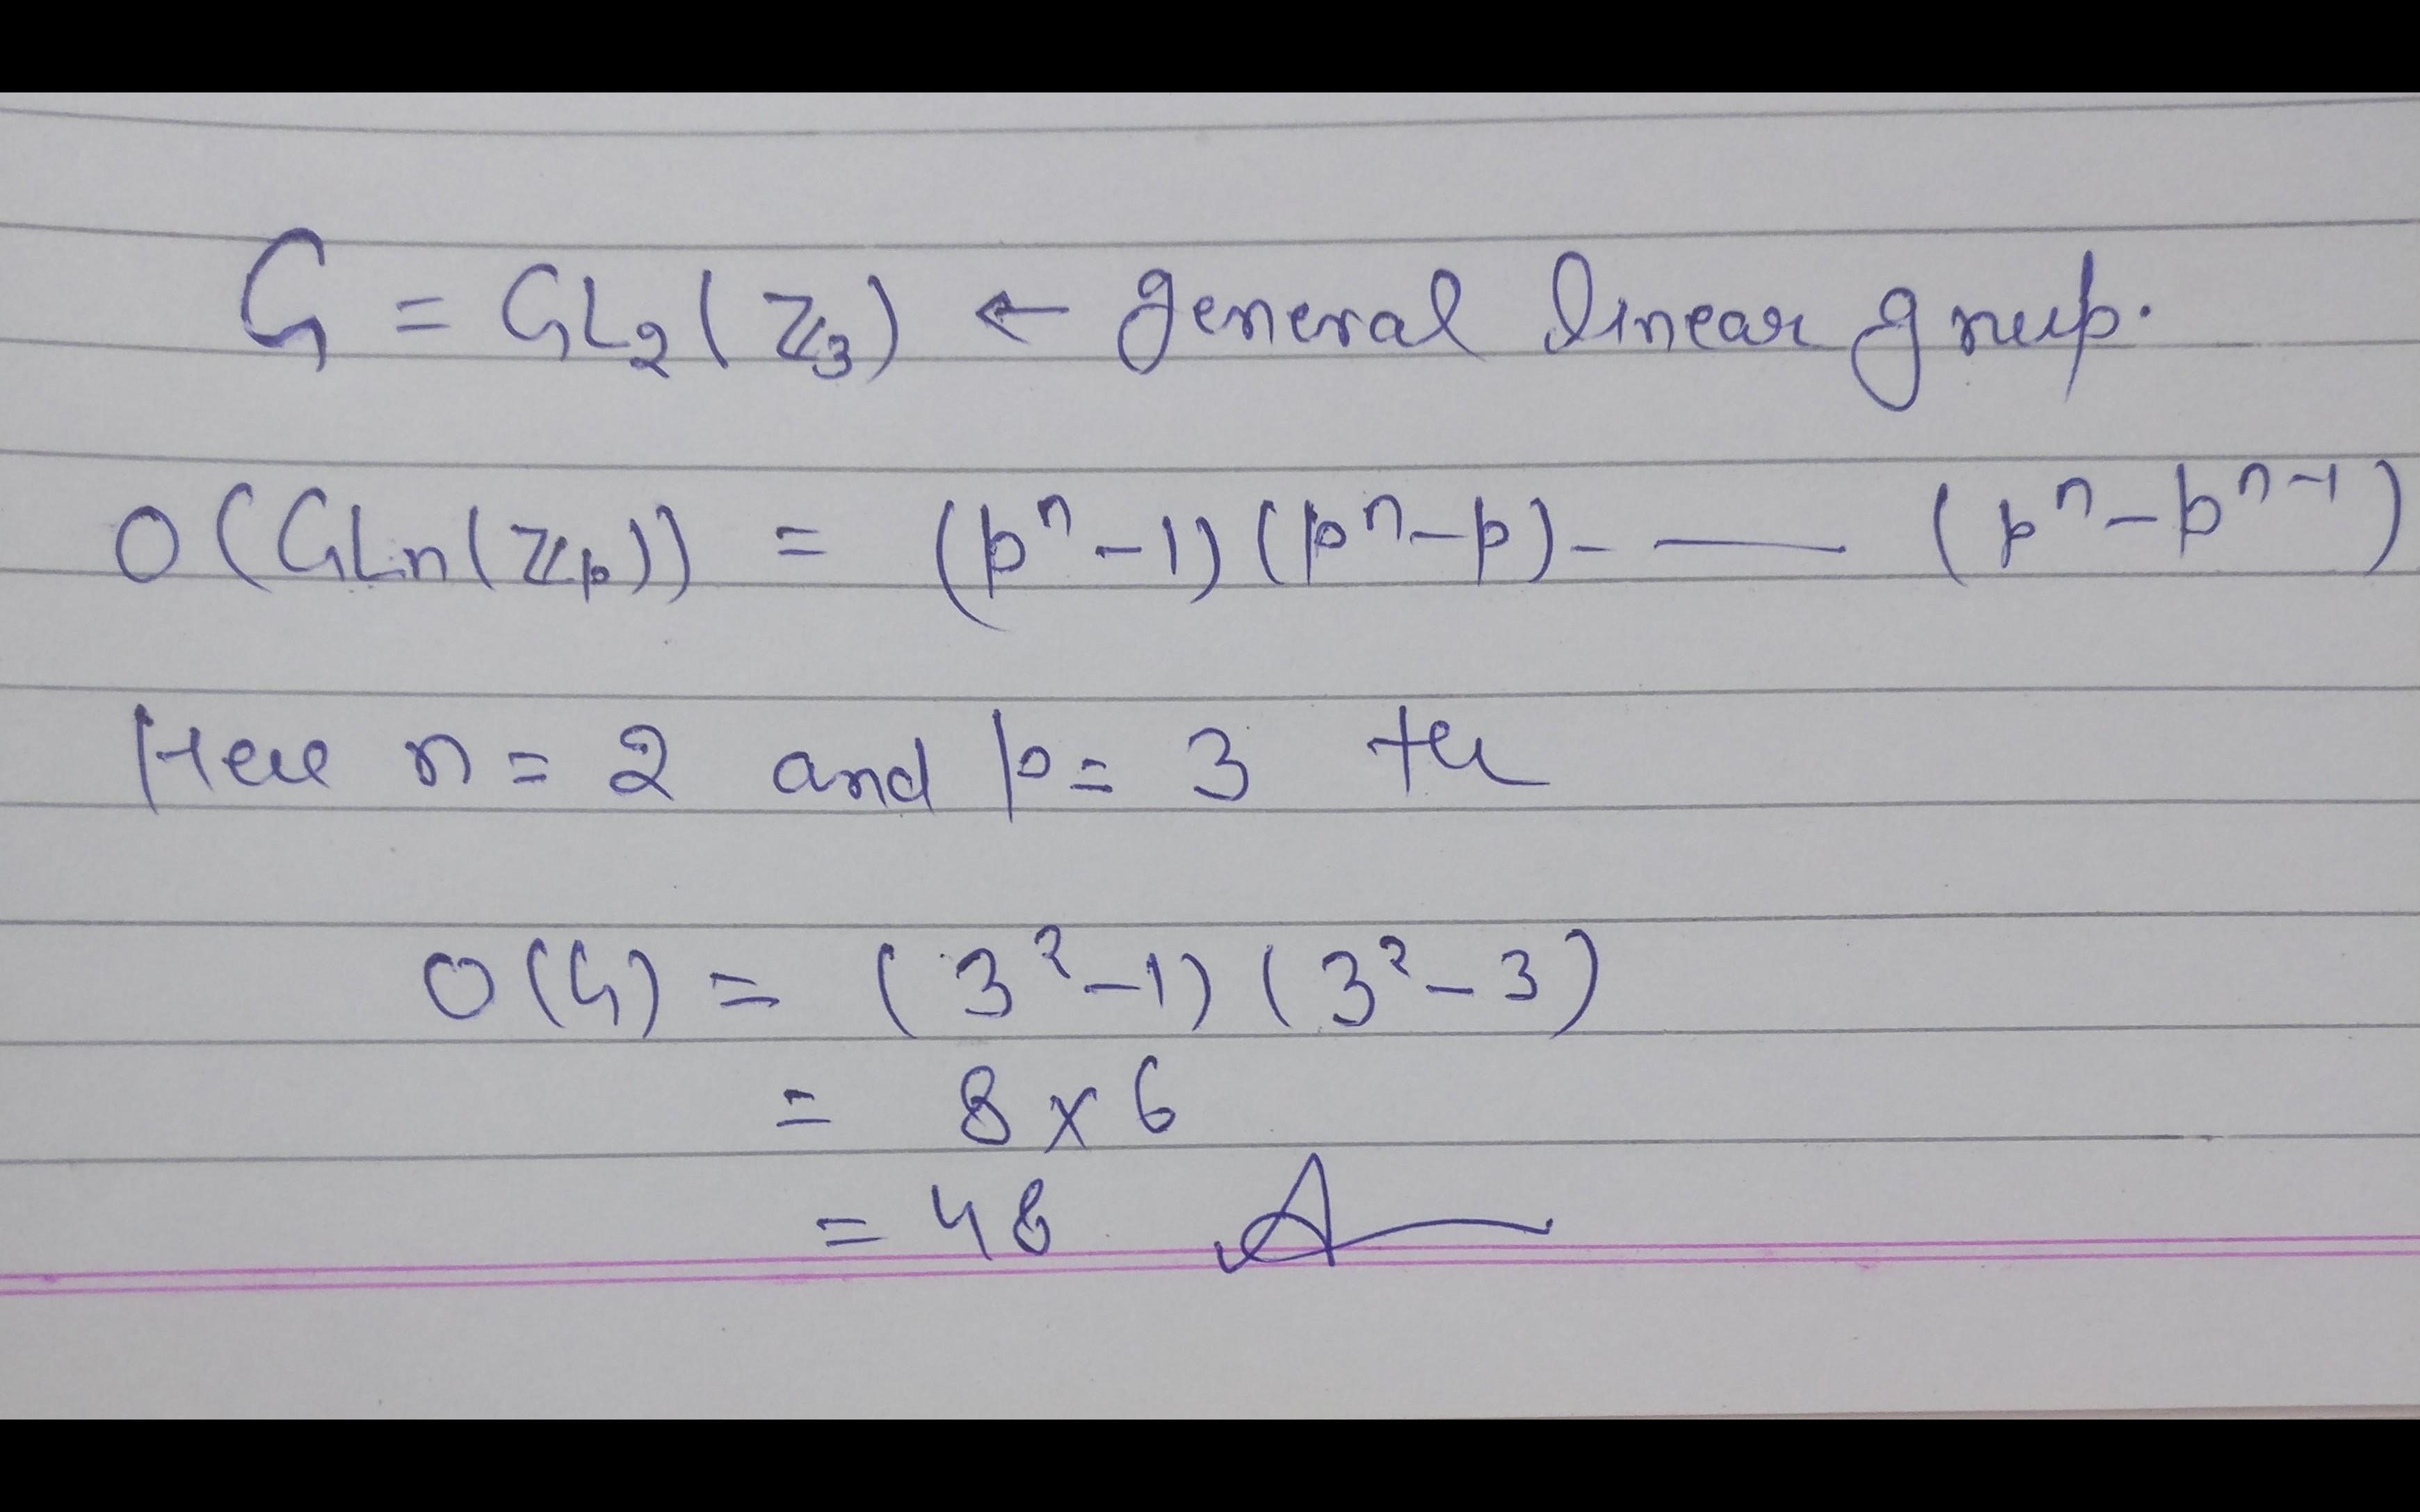 G = GL₂(ℤ₃) ← general linear group.
O(GLn(ℤp)) = (pⁿ-1)(pⁿ-p)- — (pⁿ-pⁿ⁻¹)
Here n = 2 and p = 3
O(G) = (3²-1)(3²-3)
= 8 × 6
= 48